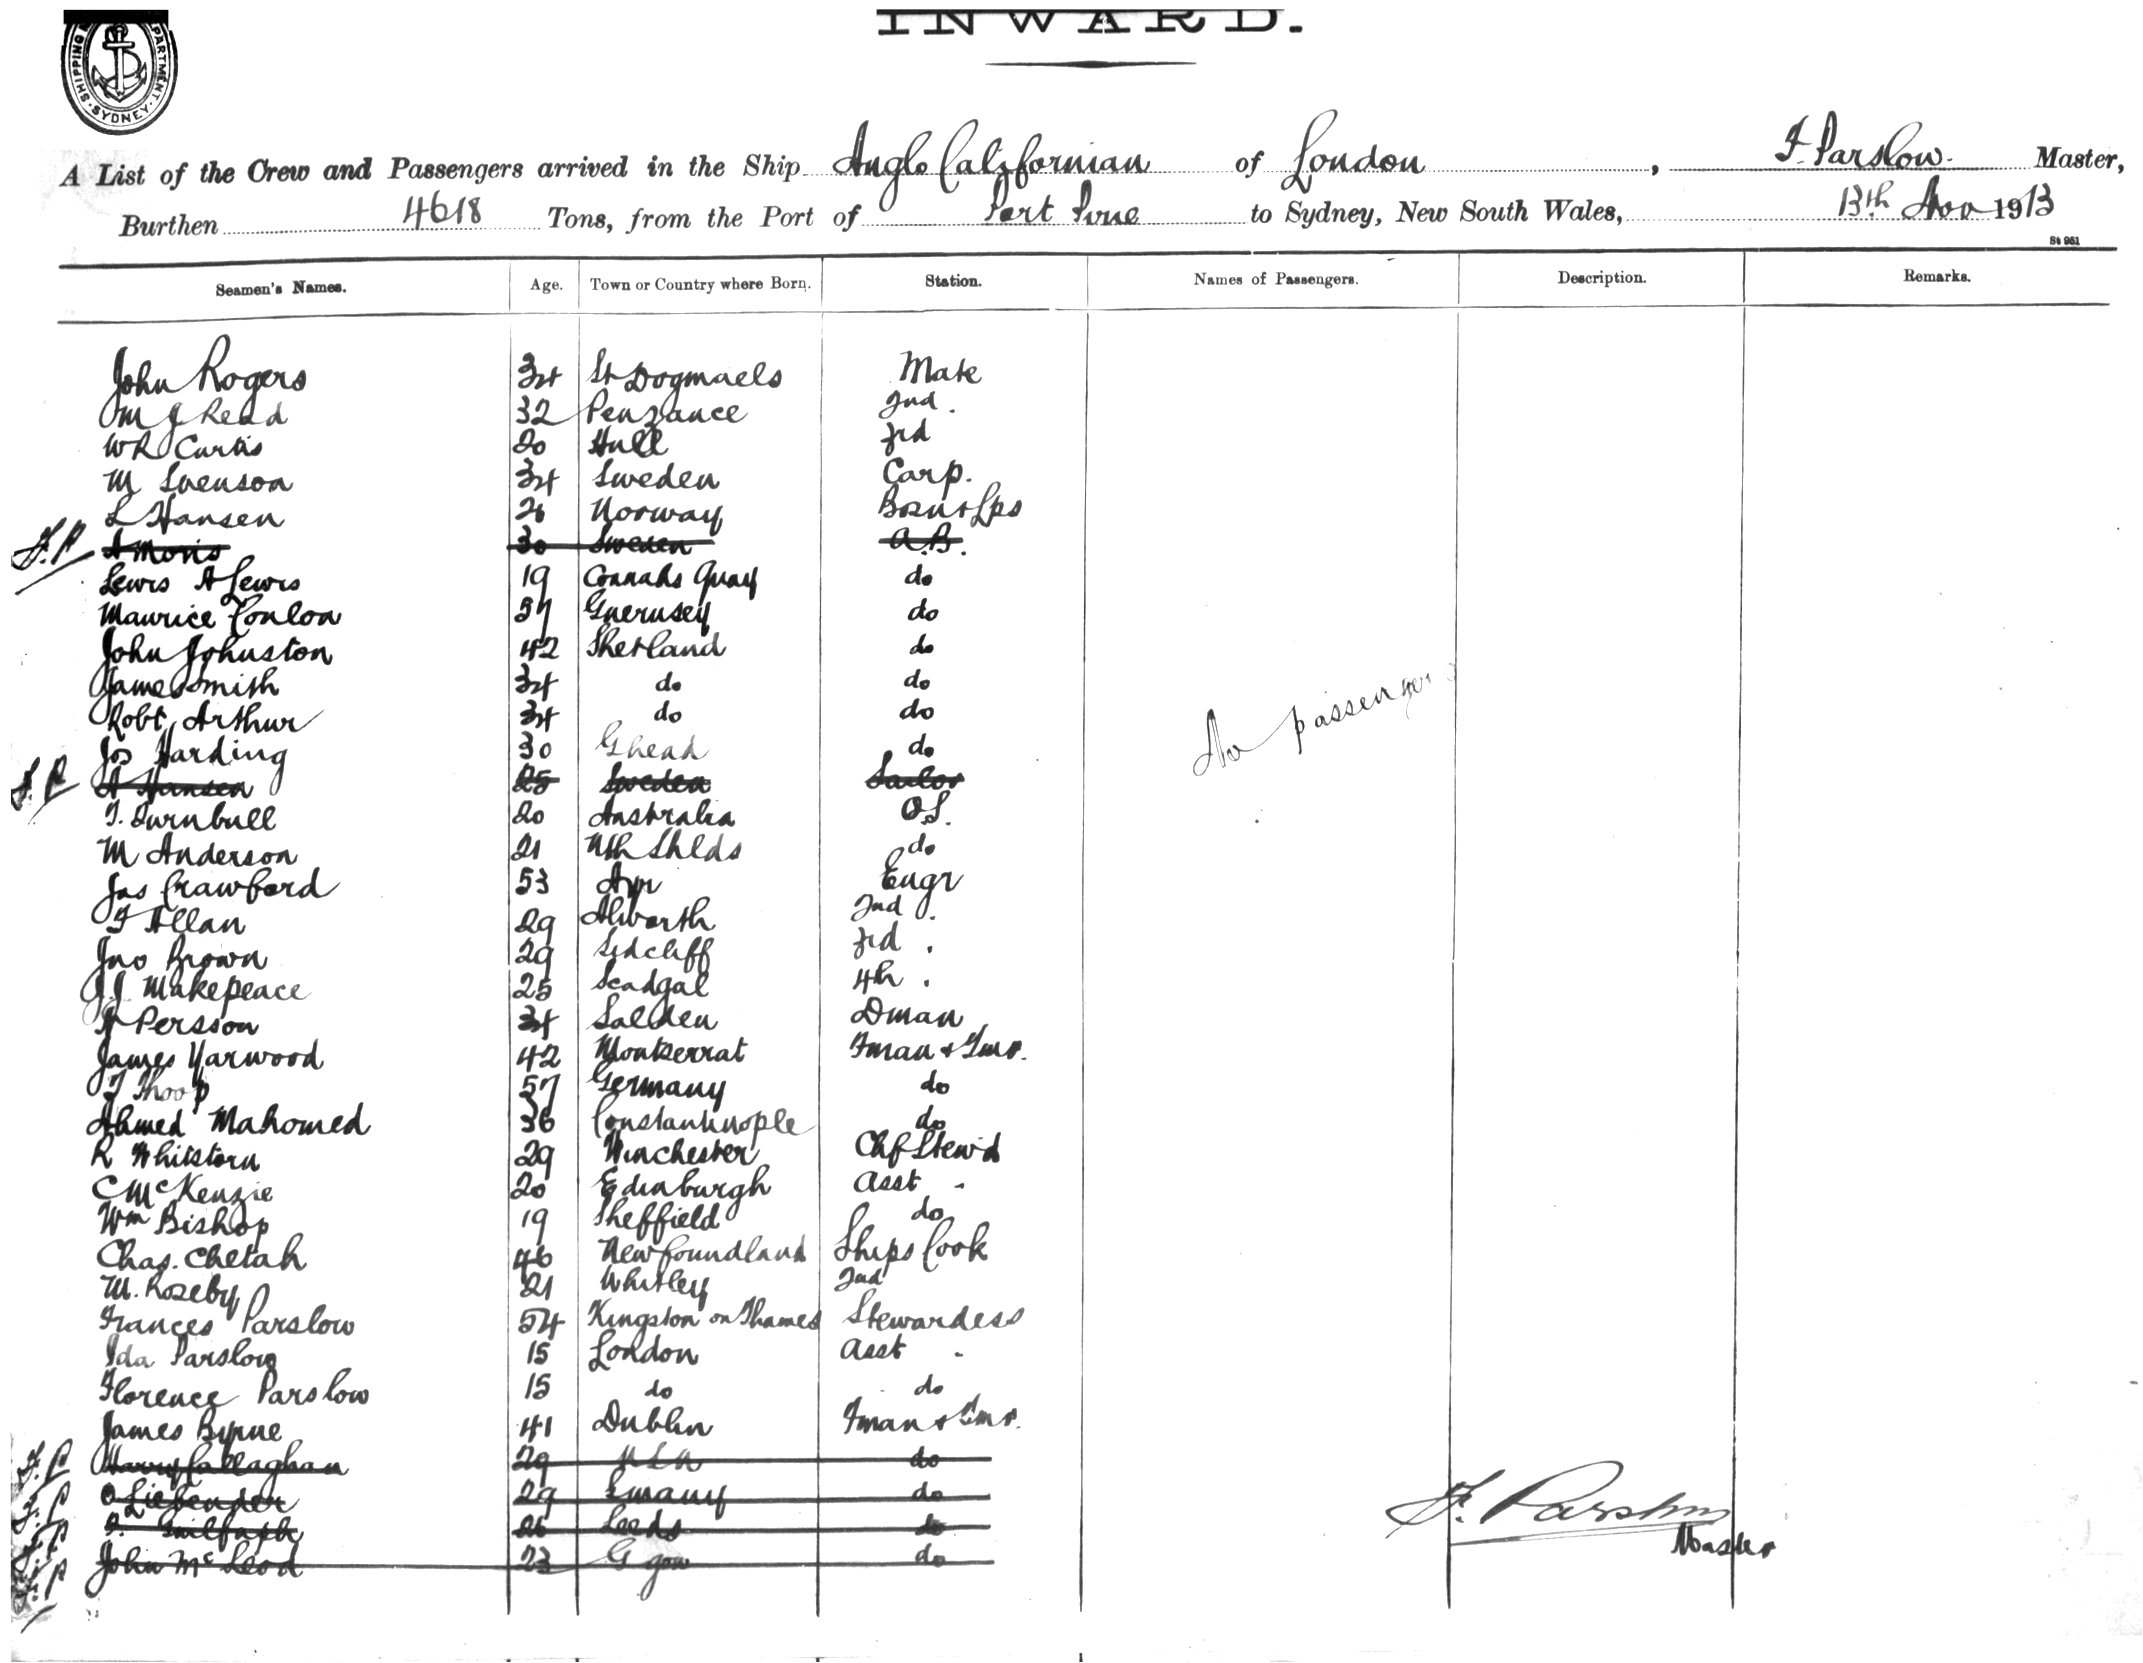 INWARD.
SHIPPING PARTMENT. SYDNEY
A List of the Crew and Passengers arrived in the Ship Anglo Californian of London, F. Parslow. Master,
Burthen 4618 Tons, from the Port of Port Pirie to Sydney, New South Wales, 13th Nov 1913
St 951
Seamen's Names. Age. Town or Country where Born. Station. Names of Passengers. Description. Remarks.
John Rogers 34 St Dogmaels Mate
M J Read 32 Penzance 2nd .
WR Curtis 20 Hull 3rd
M Svenson 34 Sweden Carp.
L Hansen 26 Norway Bosn & Lps
F.P A Moris 30 Sweden A.B.
Lewis A Lewis 19 Connahs Quay do
Maurice Conlon 57 Guernsey do
John Johnston 42 Shetland do
James Smith 34 do do
Robt Arthur 34 do do
No passengers
Jos Harding 30 Ghead do
F.P A Hansen 25 Sweden Sailor
T. Turnbull 20 Australia O.S.
M Anderson 21 Nth Shlds do
Jas Crawford 53 Ayr Engr
F Allan 29 Alworth 2nd .
Jno Brown 29 3rd .
J.J Makepeace 25 4th .
Persson 34 Dman
James Yarwood 42 Montserrat Fman & Tmr.
T Thoop 57 Germany do
Ahmed Mahomed 36 Constantinople do
R Whitstorn 29 Winchester Chf Stew'd
C McKenzie 20 Edinburgh Asst "
Wm Bishop 19 Sheffield do
Chas. Chetah 46 Newfoundland Ships Cook
M. Roseby 21 Whitley 2nd
Frances Parslow 54 Kingston on Thames Stewardess
Ida Parslow 15 London Asst "
Florence Parslow 15 do do
James Byrne 41 Dublin Fman & Tmr.
F.P Harry Callaghan 29 USA do
F.P O Liebender 29 Gmany do
F.P 26 Leeds do
F.P John McLeod 23 G gow do
F. Parslow
Master